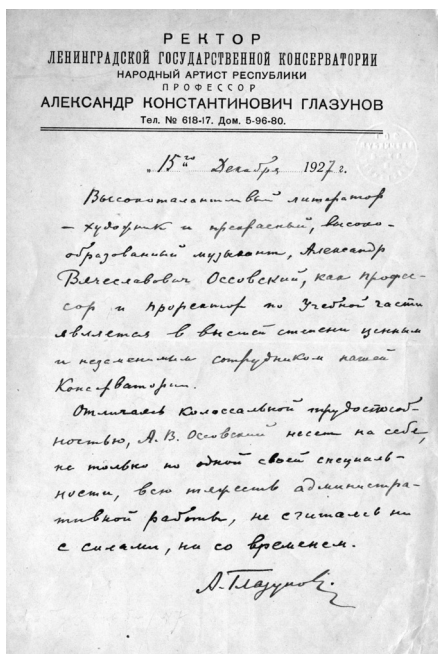 РЕКТОР
ЛЕНИНГРАДСКОЙ ГОСУДАРСТВЕННОЙ КОНСЕРВАТОРИИ
НАРОДНЫЙ АРТИСТ РЕСПУБЛИКИ
ПРОФЕССОР
АЛЕКСАНДР КОНСТАНТИНОВИЧ ГЛАЗУНОВ
Тел. № 618-17. Дом. 5-96-80.
„15го" Декабря 1927 г.
Высокоталантливый литератор
– художник и прекрасный, высоко-
образованный музыкант, Александр
Вячеславович Оссовский, как профес-
сор и проректор по Учебной части
является в высшей степени ценным
и незаменимым сотрудником нашей
Консерватории.
Отличаясь колоссальной трудоспособ-
ностью, А. В. Оссовский несет на себе,
не только по одной своей специаль-
ности, всю тяжесть администра-
тивной работы, не считаясь ни
с силами, ни со временем.
А. Глазунов.